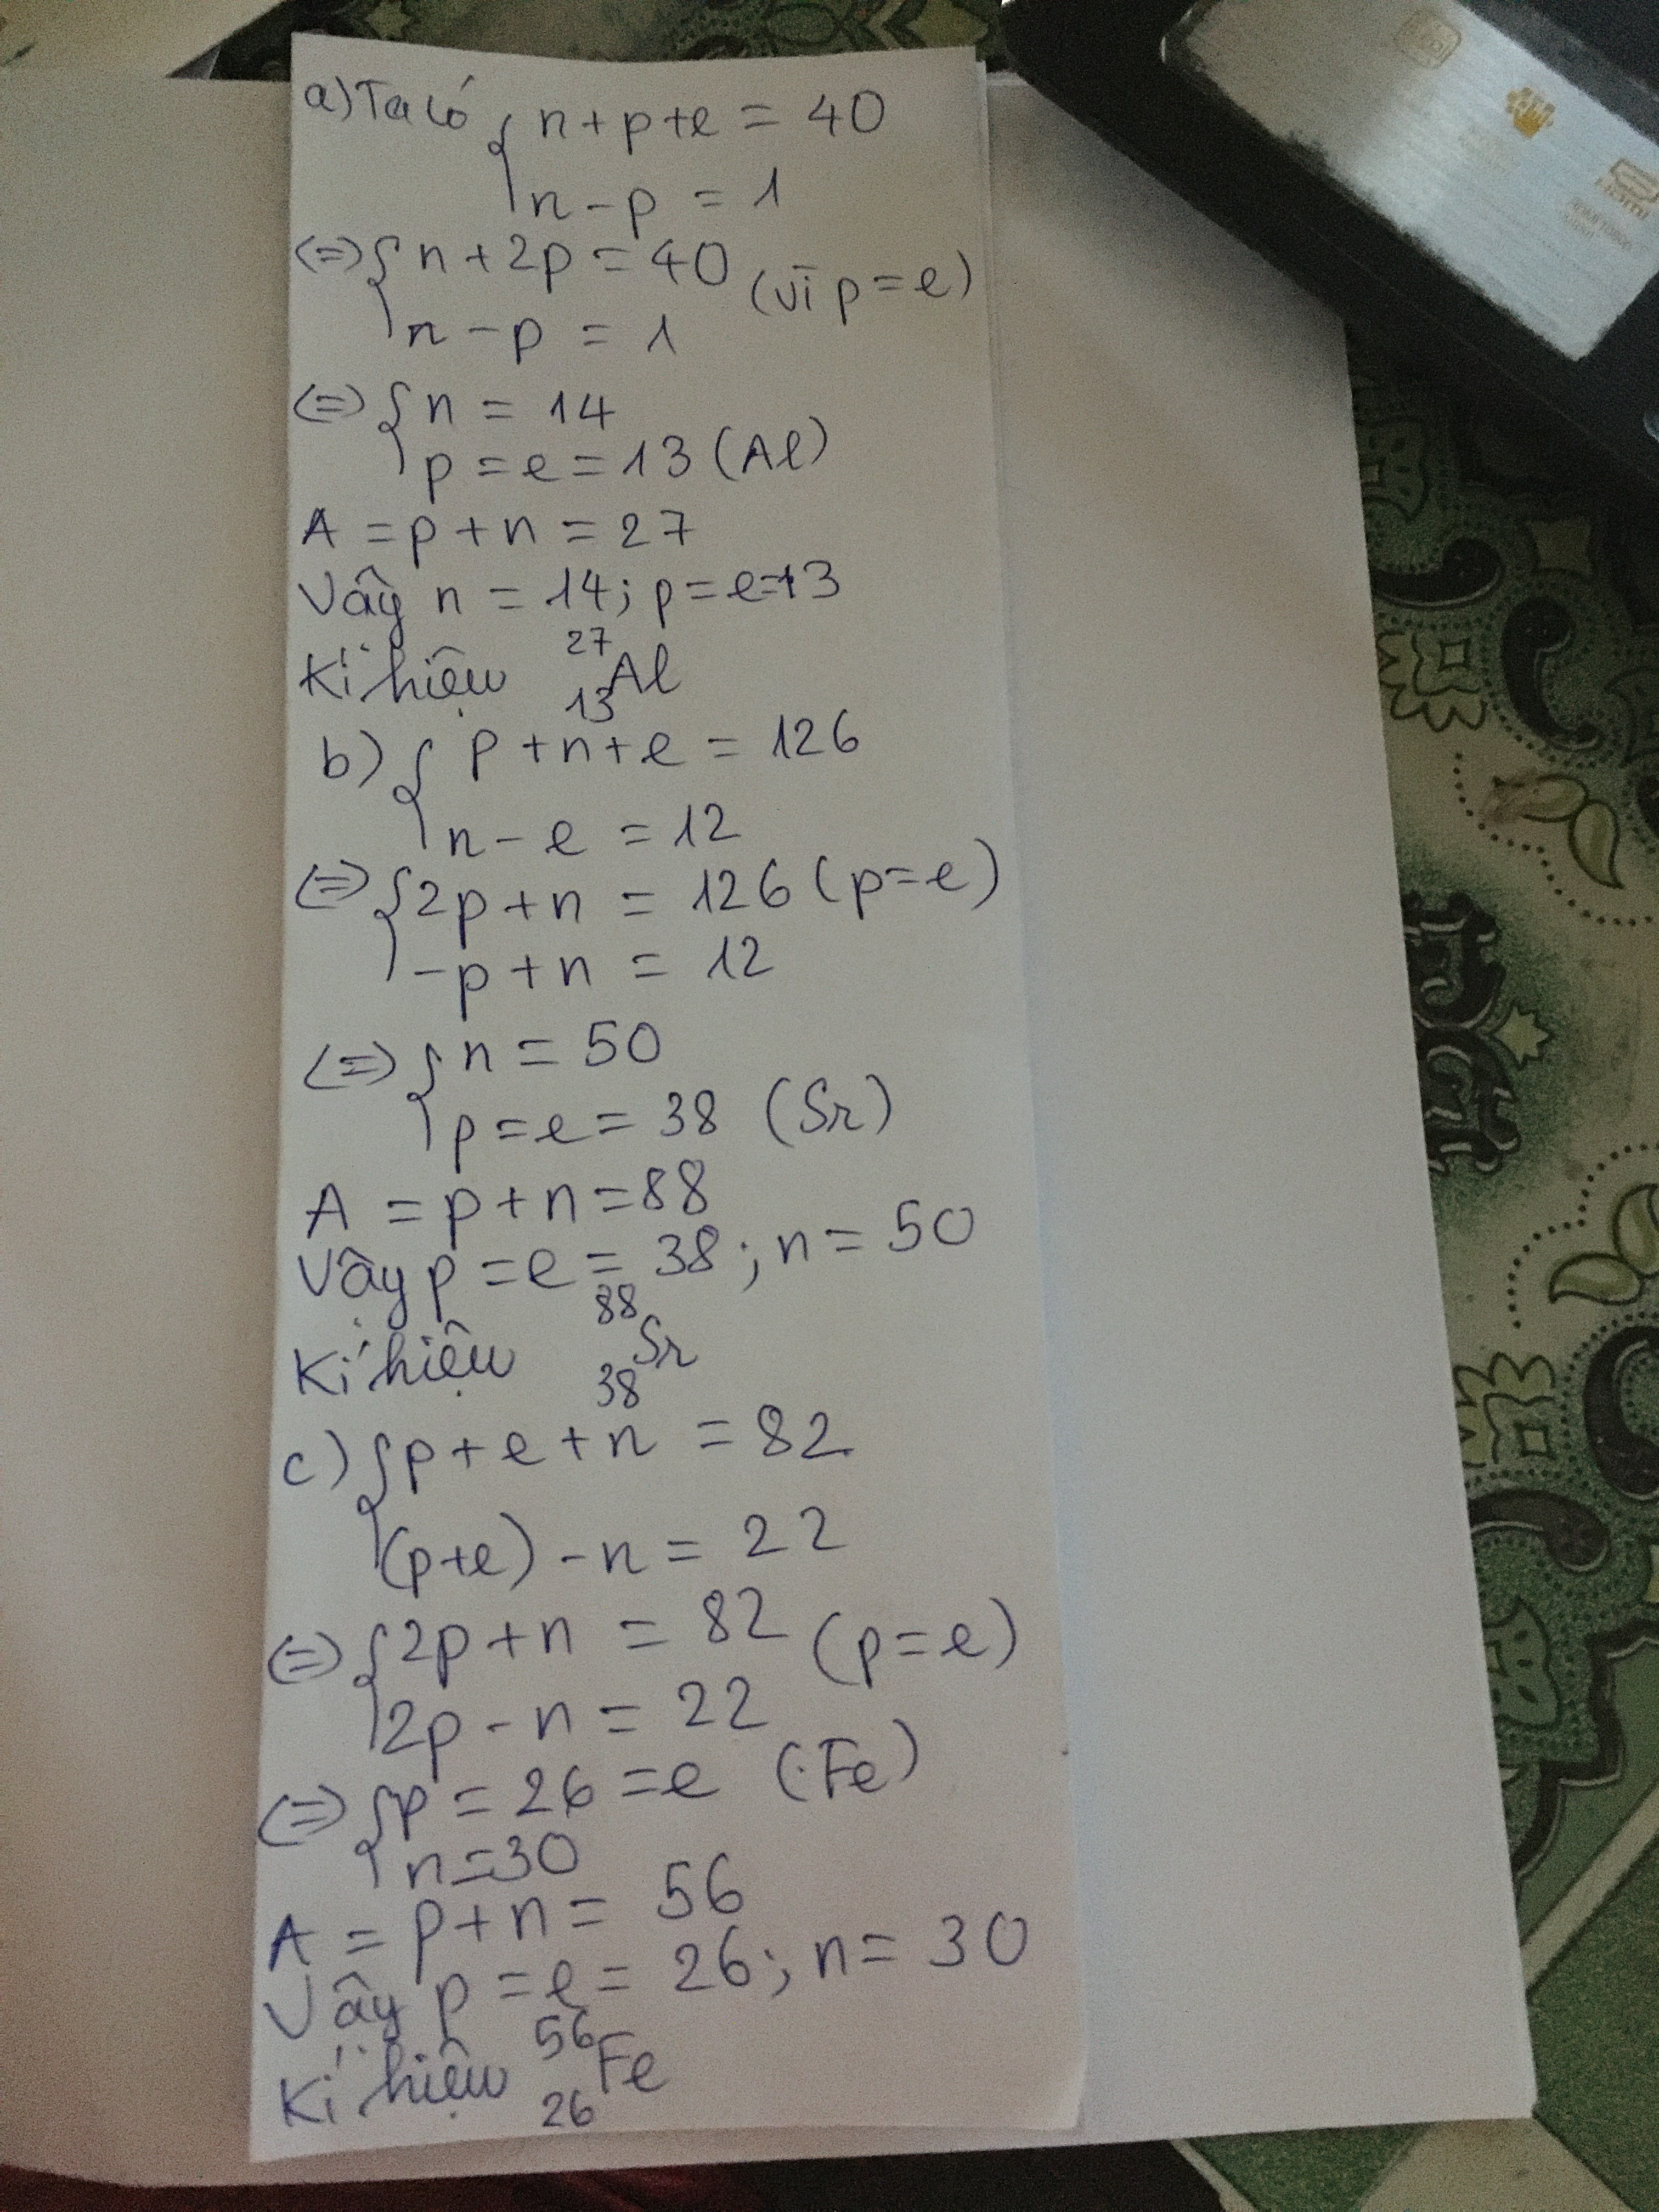 a) Ta có { n + p + e = 40
n - p = 1
<=> { n + 2p = 40 (vì p = e)
n - p = 1
<=> { n = 14
p = e = 13 (Al)
A = p + n = 27
Vậy n = 14; p = e = 13
Kí hiệu ²⁷₁₃Al
b) { p + n + e = 126
n - e = 12
<=> { 2p + n = 126 (p = e)
-p + n = 12
<=> { n = 50
p = e = 38 (Sr)
A = p + n = 88
Vậy p = e = 38; n = 50
Kí hiệu ⁸⁸₃₈Sr
c) { p + e + n = 82
(p+e) - n = 22
<=> { 2p + n = 82 (p = e)
2p - n = 22
<=> { p = 26 = e (Fe)
n = 30
A = p + n = 56
Vậy p = e = 26; n = 30
Kí hiệu ⁵⁶₂₆Fe